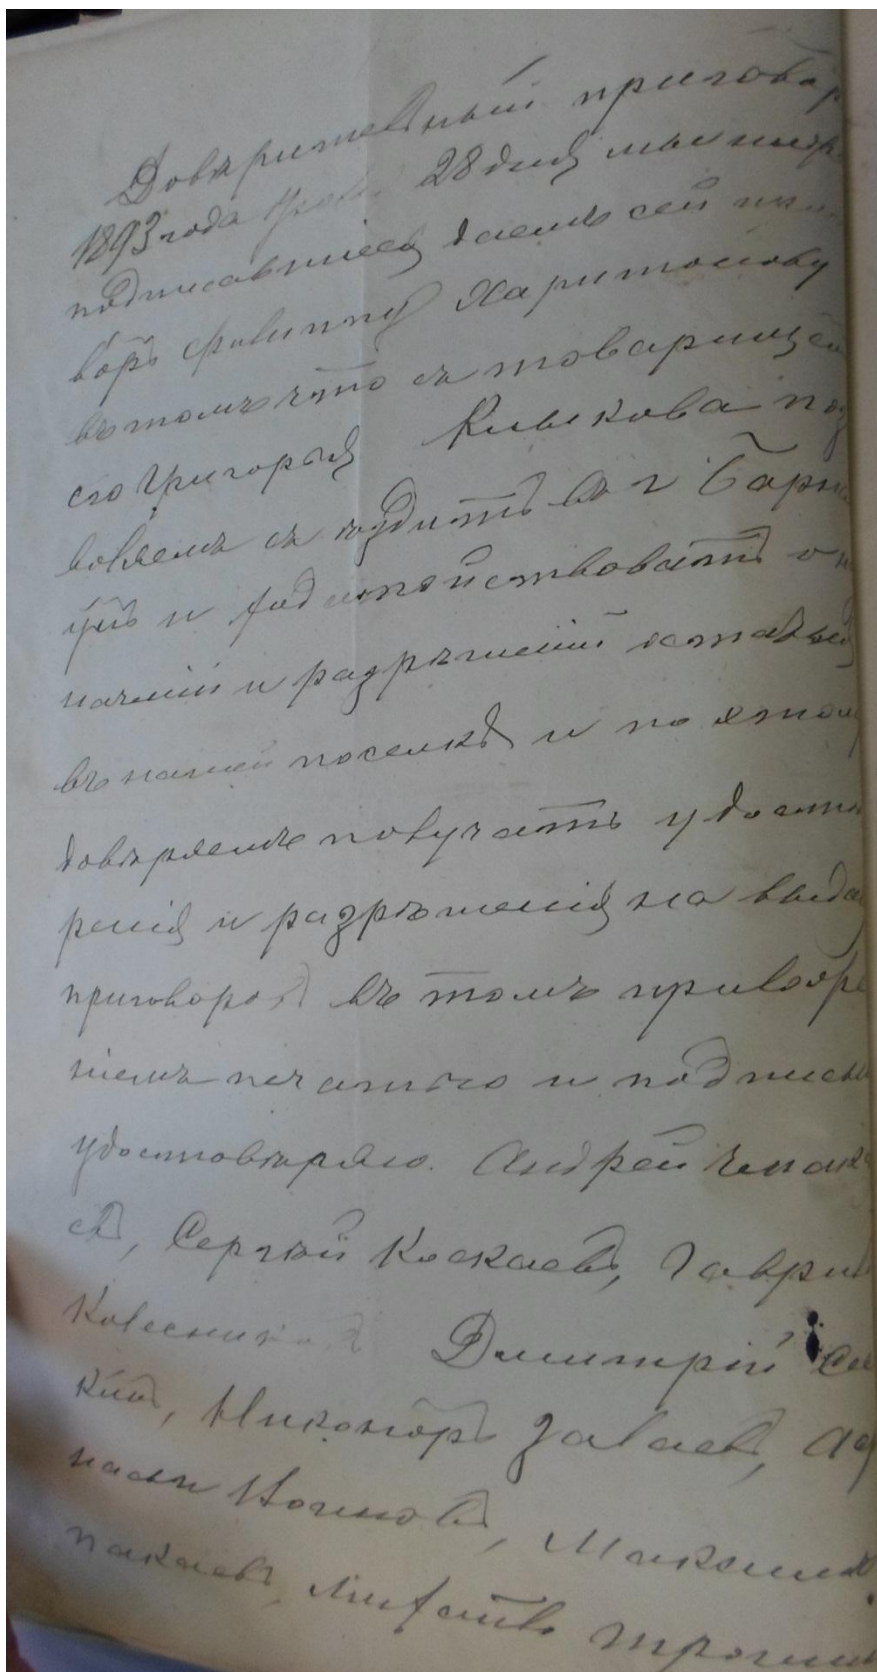 Доверительный приговор
1893 года 28 дня мы ниж
подписавшиеся даемъ сей при
воръ Филиппу Харитонову
въ томъ что съ товарищем
его Григорья Кильмкова поз
воляемъ съѣздить въ г Барна
улъ и ходотойствовать о
начіи и разрѣшеніи
въ нашей поселкѣ и по этому
довѣряемъ получать удостов
ренія и разрѣшенія на выда
приговоровъ въ томъ приложе
ніемъ печатью и подписью
удостовѣряю. Андрей Чепака
евъ, Сергѣй Коскаевъ, Гаврил
Колесников Дмитрій Сев
кинъ, Никоноръ Залаевъ,
Максимъ
пакаевъ, Михаилъ Трогин